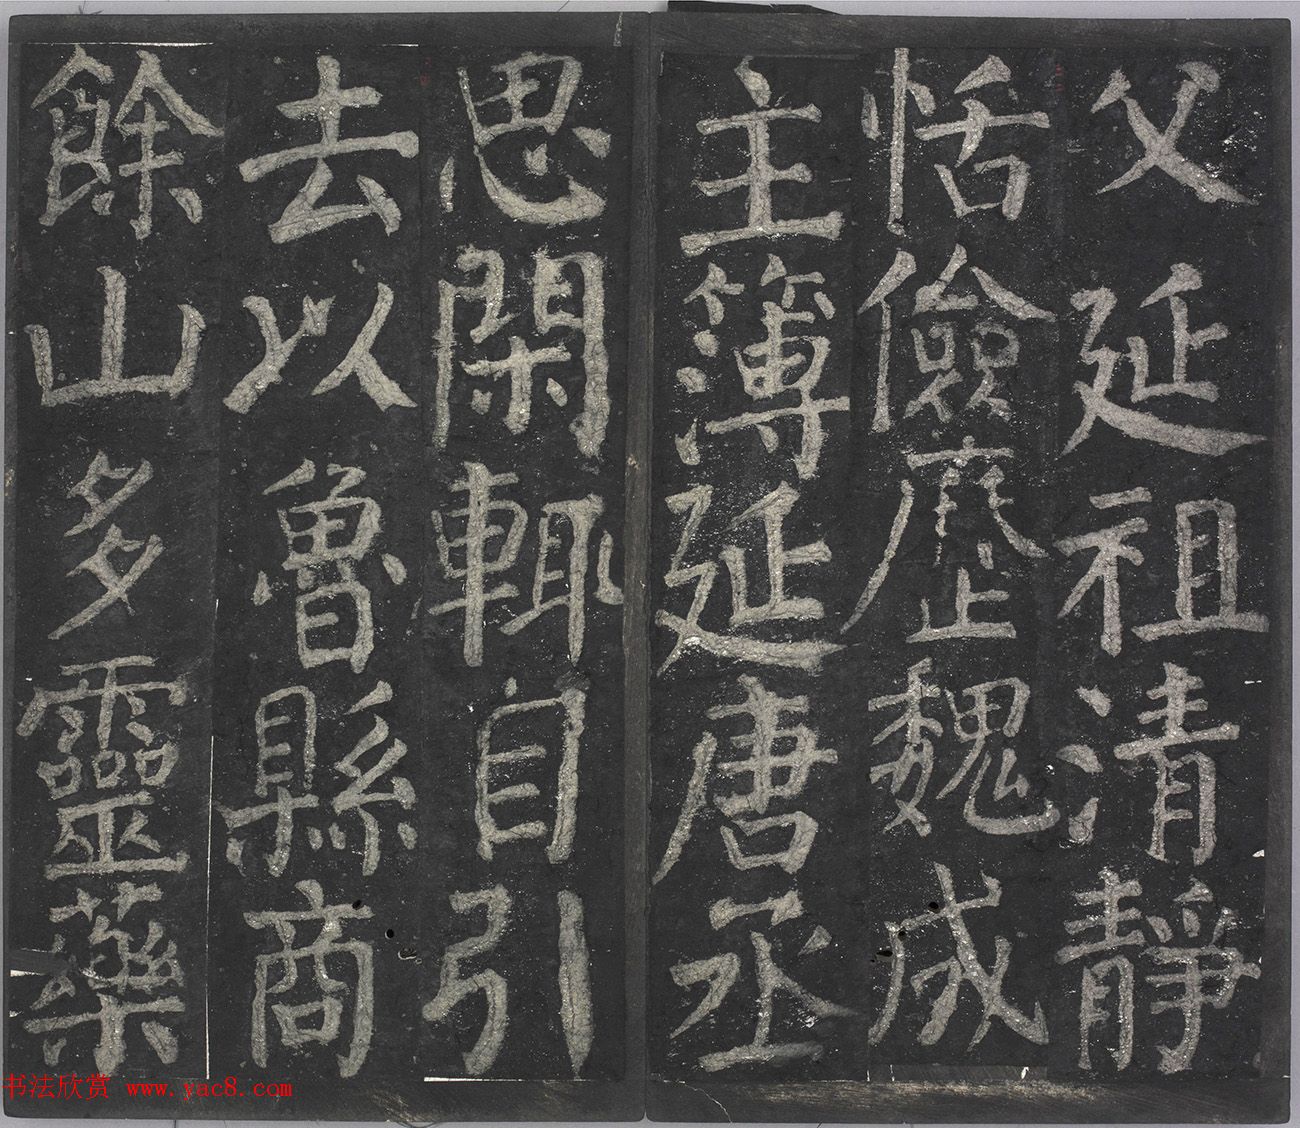 父延祖清靜
恬儉歷魏成
主簿延唐丞
思閑輒自引
去以魯縣商
餘山多靈藥
书法欣赏 www.yac8.com